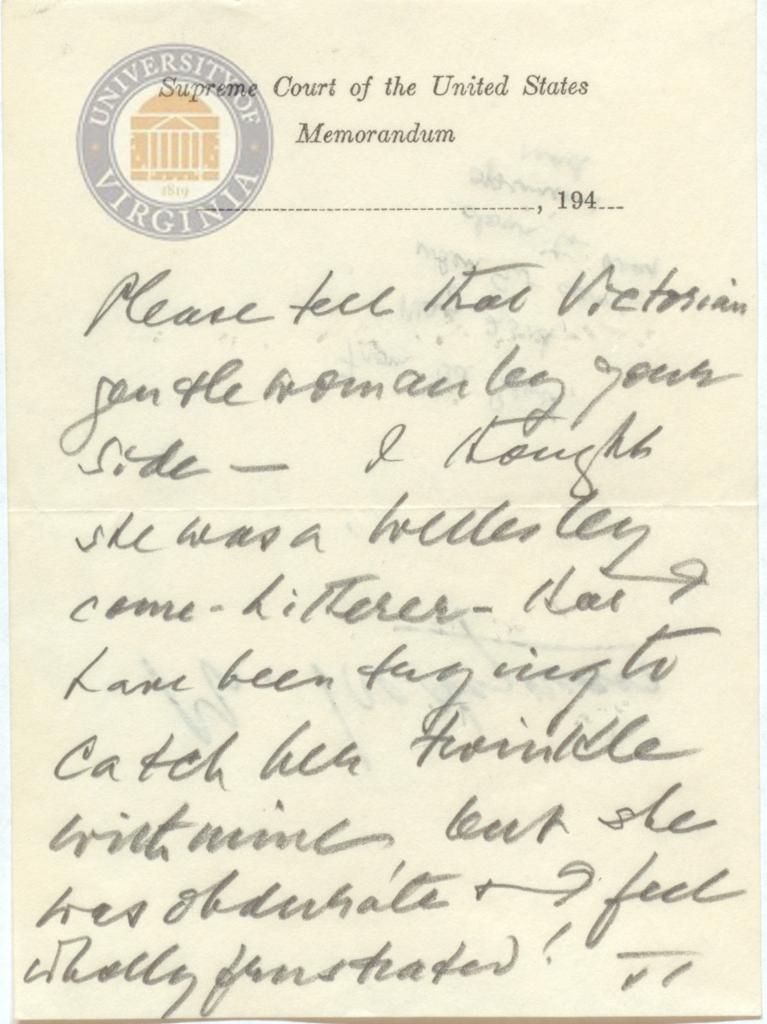 UNIVERSITY OF VIRGINIA
1819
Supreme Court of the United States
Memorandum
, 194
Please tell that Victorian
gentlewoman by your
side — I thought
she was a Wellesley
come-hitherer - that I
have been trying to
catch her twinkle
with mine, but she
was obdurate & I feel
wholly frustrated!